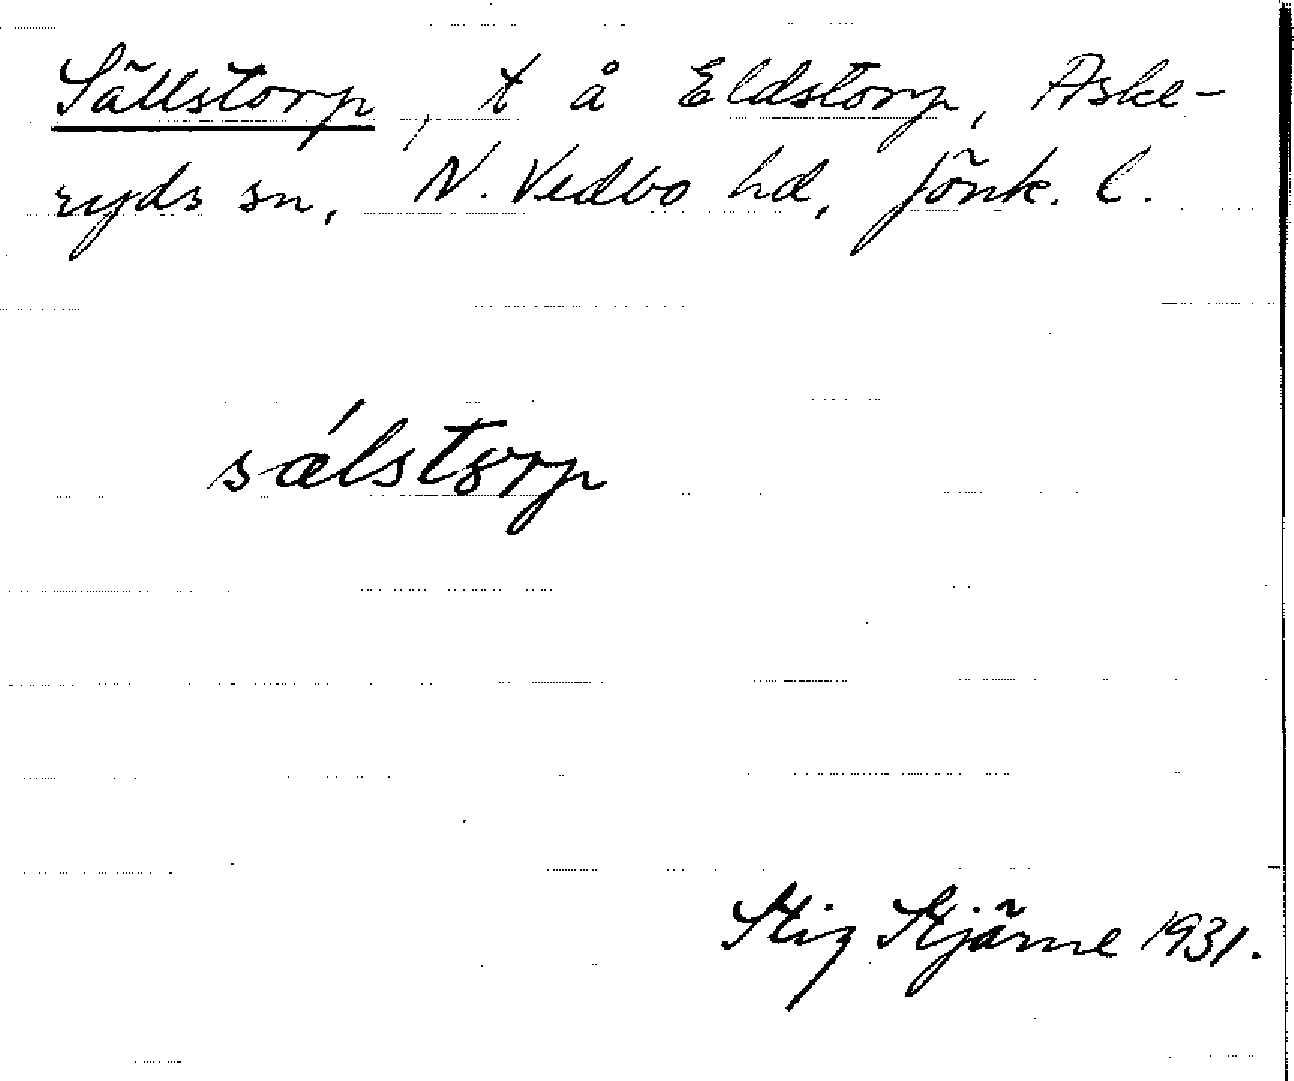 Sällstorp, t å Eldstorp, Aske-
ryds sn, N. Vedbo hd, Jönk. l.
sǽlstorp
Stig Stjärne 1931.